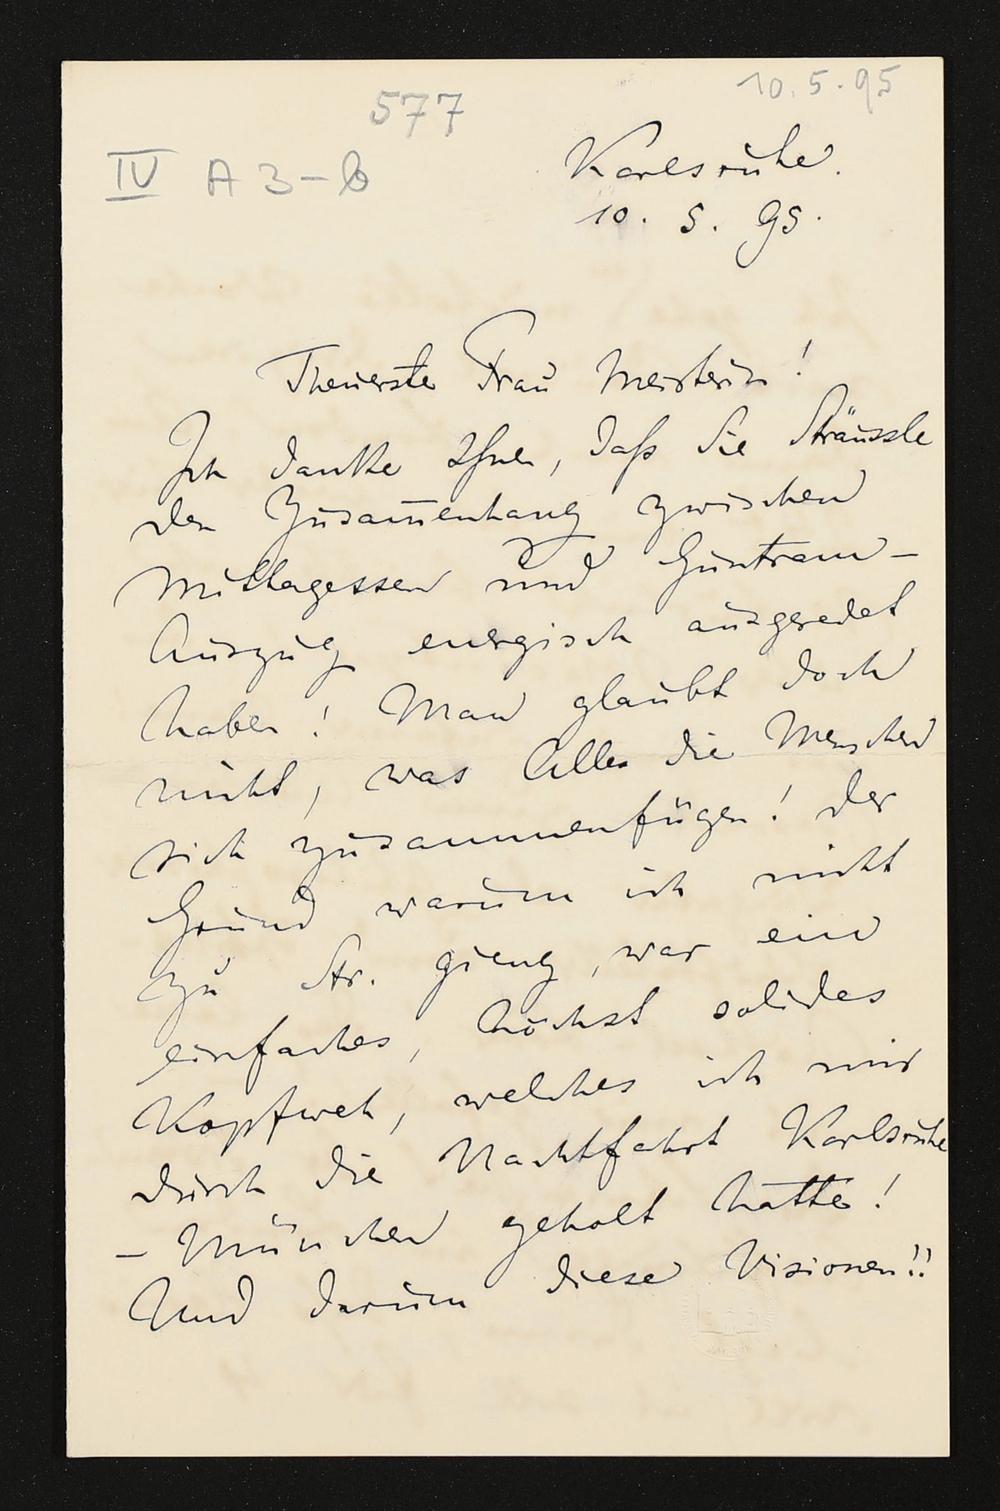 10.5.95
577
IV A 3-b
Karlsruhe.
10. 5. 95.
Theuerste Frau Meisterin!
Ich danke Ihnen, daß Sie Sträussle
den Zusam̅enhang zwischen
Mittagessen und Guntram-
Auszug energisch ausgeredet
haben! Man glaubt doch
nicht, was Alles die Menschen
sich zusammenfügen! Der
Grund warum ich nicht
zu Str. gieng, war ein
einfaches, höchst solides
Kopfweh, welches ich mir
durch die Nachtfahrt Karlsruhe
- München geholt hatte!
Und darum diese Visionen!!